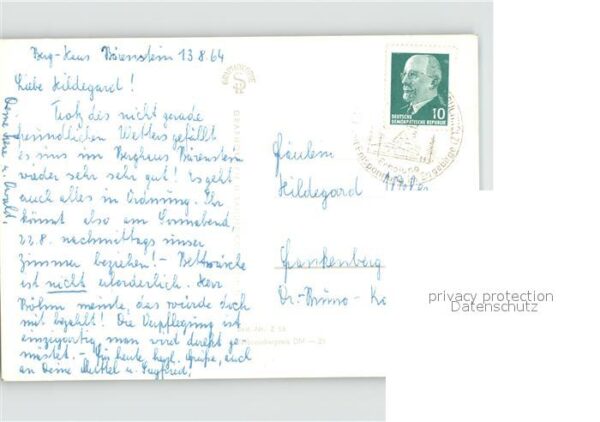 Berg-Haus Bärenstein 13.8.64
Liebe Hildegard!
Trotz des nicht gerade
freundlichen Wetters gefällt
es uns im Berghaus Bärenstein
wieder sehr sehr gut! Es geht
auch alles in Ordnung. Ihr
könnt also am Sonnabend,
22.8. nachmittags unser
Zimmer beziehen! - Bettwäsche
ist nicht erforderlich. Herr
Böhm meinte, das würde doch
mit bezahlt! Die Verpflegung ist
einzigartig, man wird direkt ge
mästet. - Für heute, herzl. Grüße, auch
an Deine Mutter u. Siegfried,
Deine u.
10
DEUTSCHE
DEMOKRATISCHE REPUBLIK
Fräulein
Hildegard
Frankenberg
Dr.-Bruno-K
privacy protection
Datenschutz